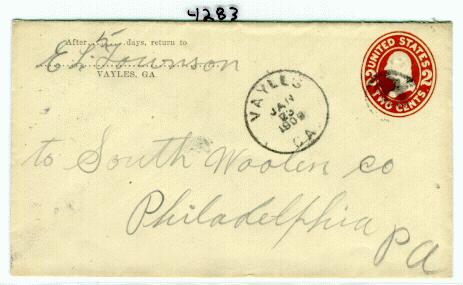 4283
After 5 days, return to
E L Townson
VAYLES, GA
VAYLES
JAN
1909
GA
UNITED STATES
2 2
TWO CENTS
to South Woolen co
Philadelphia
Pa